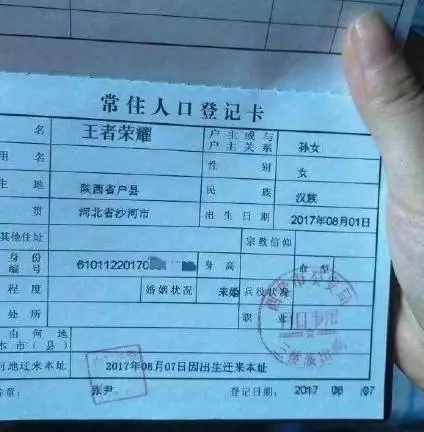 常住人口登记卡
名 王者荣耀 户主或与户主关系 孙女
用名 性别 女
生地 陕西省户县 民族 汉族
贯 河北省沙河市 出生日期 2017年08月01日
其他住址 宗教信仰
身份编号 6101122017 身高 血型
程度 婚姻状况 未婚 兵役状况
处所 职业
由何地
本市（县）
何地迁来本址 2017年08月07日因出生迁来本址
签章： 张尹 登记日期： 2017 08 07